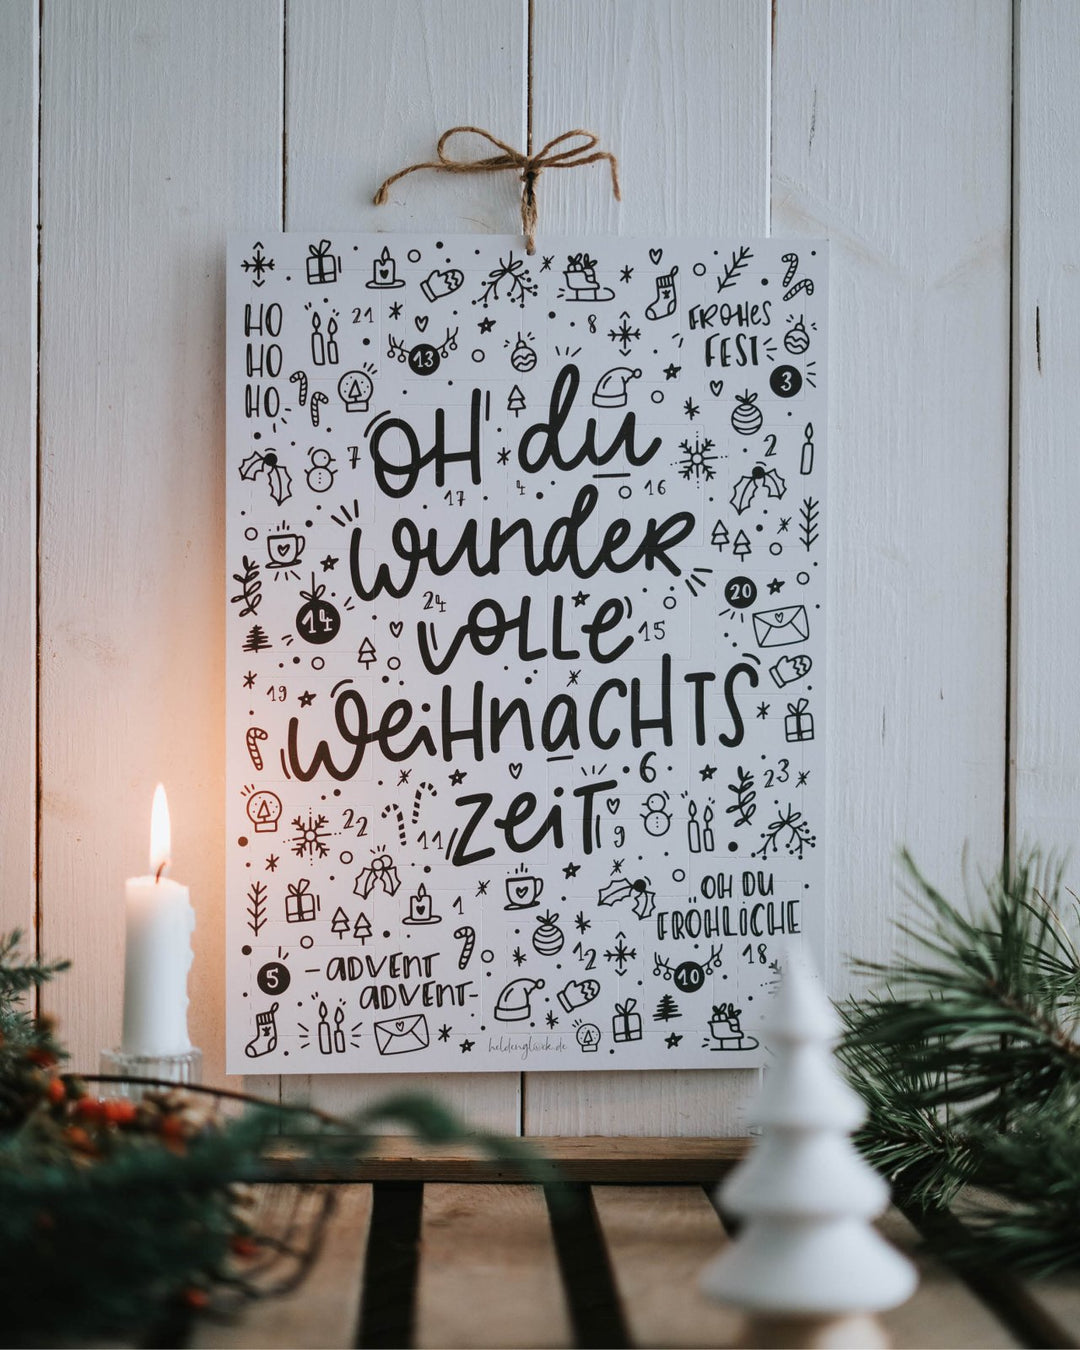 HO
HO
HO
21
13
8
FROHES
FEST
3
OH du
7
2
17
4
16
wunder
14
24
20
VOLLE
15
19
WeiHnaCHTS
6
23
zeiT
22
11
9
1
ÖH DU
FRÖHLiCHE
5
- ADVENT
ADVENT -
12
10
18
heldenglück.de